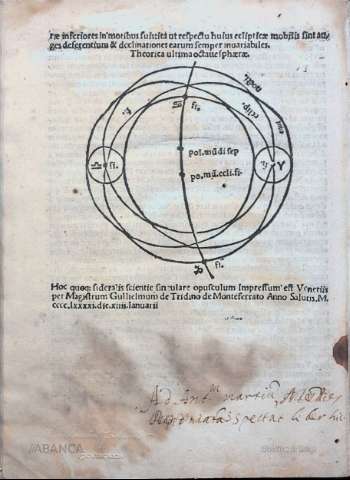 ræ inferiores in motibus suis ita ut respectu huius eclipticæ mobilis sint au-
ges deferentium & declinationes earum semper inuariabiles.
Theorica ultima octauæ sphæræ.
♋ fi.
♎ fi.
fi. ♈
eclip.
pol. mūdi sep
po. mū. ecli. fi.
♑ fi.
Hoc quoq; sideralis scientie singulare opusculum Impressum est Venetiis
per Magistrum Gullielmum de Tridino de Monteferrato Anno Salutis. M.
cccc.lxxxxi. die. xiiii. Ianuarii
Ad Ant
spectat liber hic
ABANCA